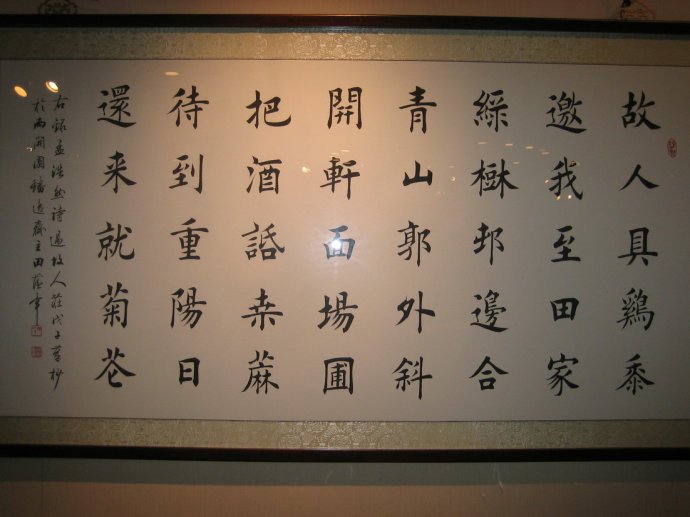 故人具鷄黍
邀我至田家
綵樹邨邊合
青山郭外斜
開軒面場圃
把酒話桑蔴
待到重陽日
還来就菊花
右錄孟浩然詩過故人莊戊子草抄
於兩閒園